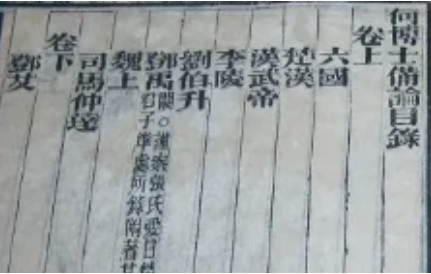 何博士備論目錄
卷上
六國
楚漢
漢武帝
李陵
劉伯升
鄧禹 闕○謹案張氏愛日
君子準處所錄附著
魏上
司馬仲達
卷下
鄧艾